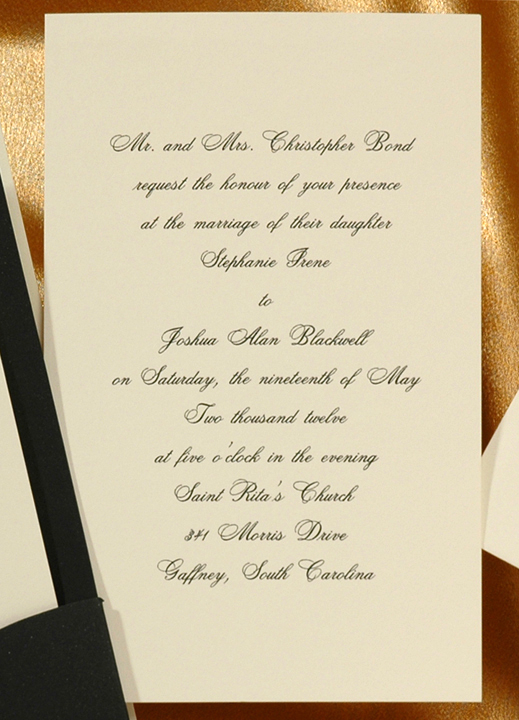 Mr. and Mrs. Christopher Bond
request the honour of your presence
at the marriage of their daughter
Stephanie Irene
to
Joshua Alan Blackwell
on Saturday, the nineteenth of May
Two thousand twelve
at five o'clock in the evening
Saint Rita's Church
341 Morris Drive
Gaffney, South Carolina